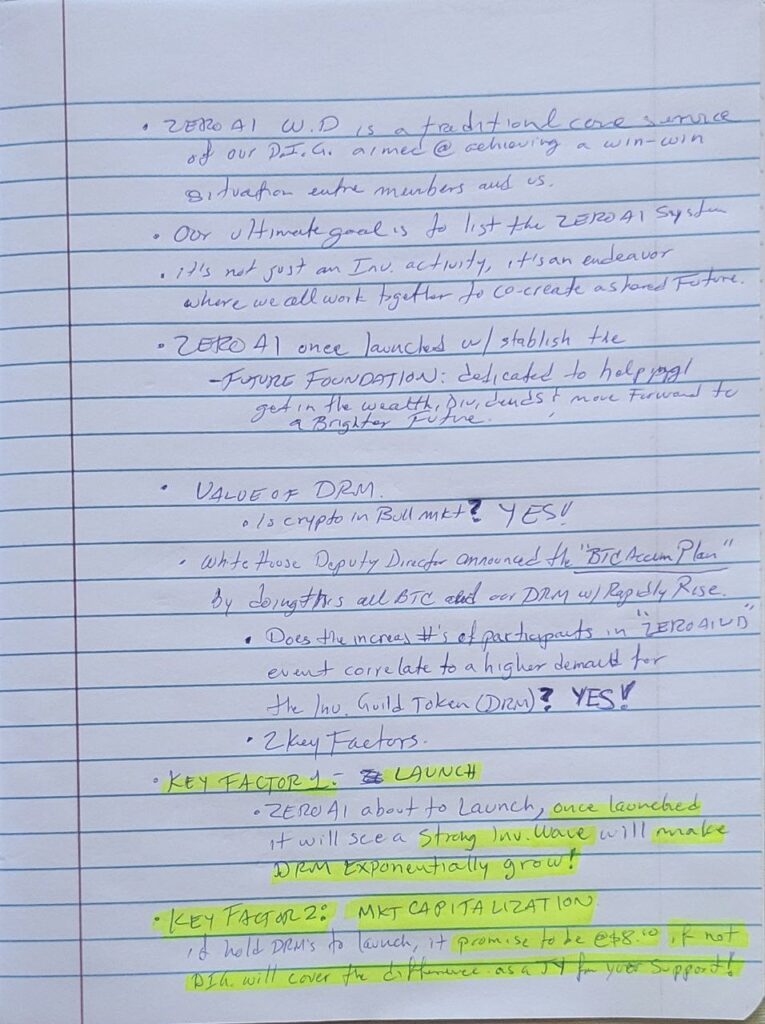 • ZERO AI W.D is a traditional core service
of our D.I.G. aimed @ achieving a win-win
situation entre members and us.
• Our ultimate goal is to list the ZERO AI System
• it's not just an Inv. activity, it's an endeavor
where we all work together to co-create a shared Future.
• ZERO AI once launched w/ stablish the
- FUTURE FOUNDATION: dedicated to help
get in the wealth, Dividends & move Forward to
a Brighter Future.
• VALUE OF DRM.
• Is crypto in Bull mkt? YES!
• White House Deputy Director announced the "BTC Accum Plan"
By doing this all BTC and our DRM w/ Rapidly Rise.
• Does the increas #'s of participants in "ZERO AI WD"
event correlate to a higher demand for
the Inv. Guild Token (DRM)? YES!
• 2 Key Factors.
• KEY FACTOR 1: LAUNCH
• ZERO AI about to Launch, once launched
it will see a Strong Inv. Wave will make
DRM Exponentially grow!
• KEY FACTOR 2: MKT CAPITALIZATION
if hold DRM's to launch, it promise to be @$8.10, if not
DIG. will cover the difference as a TY for your Support!